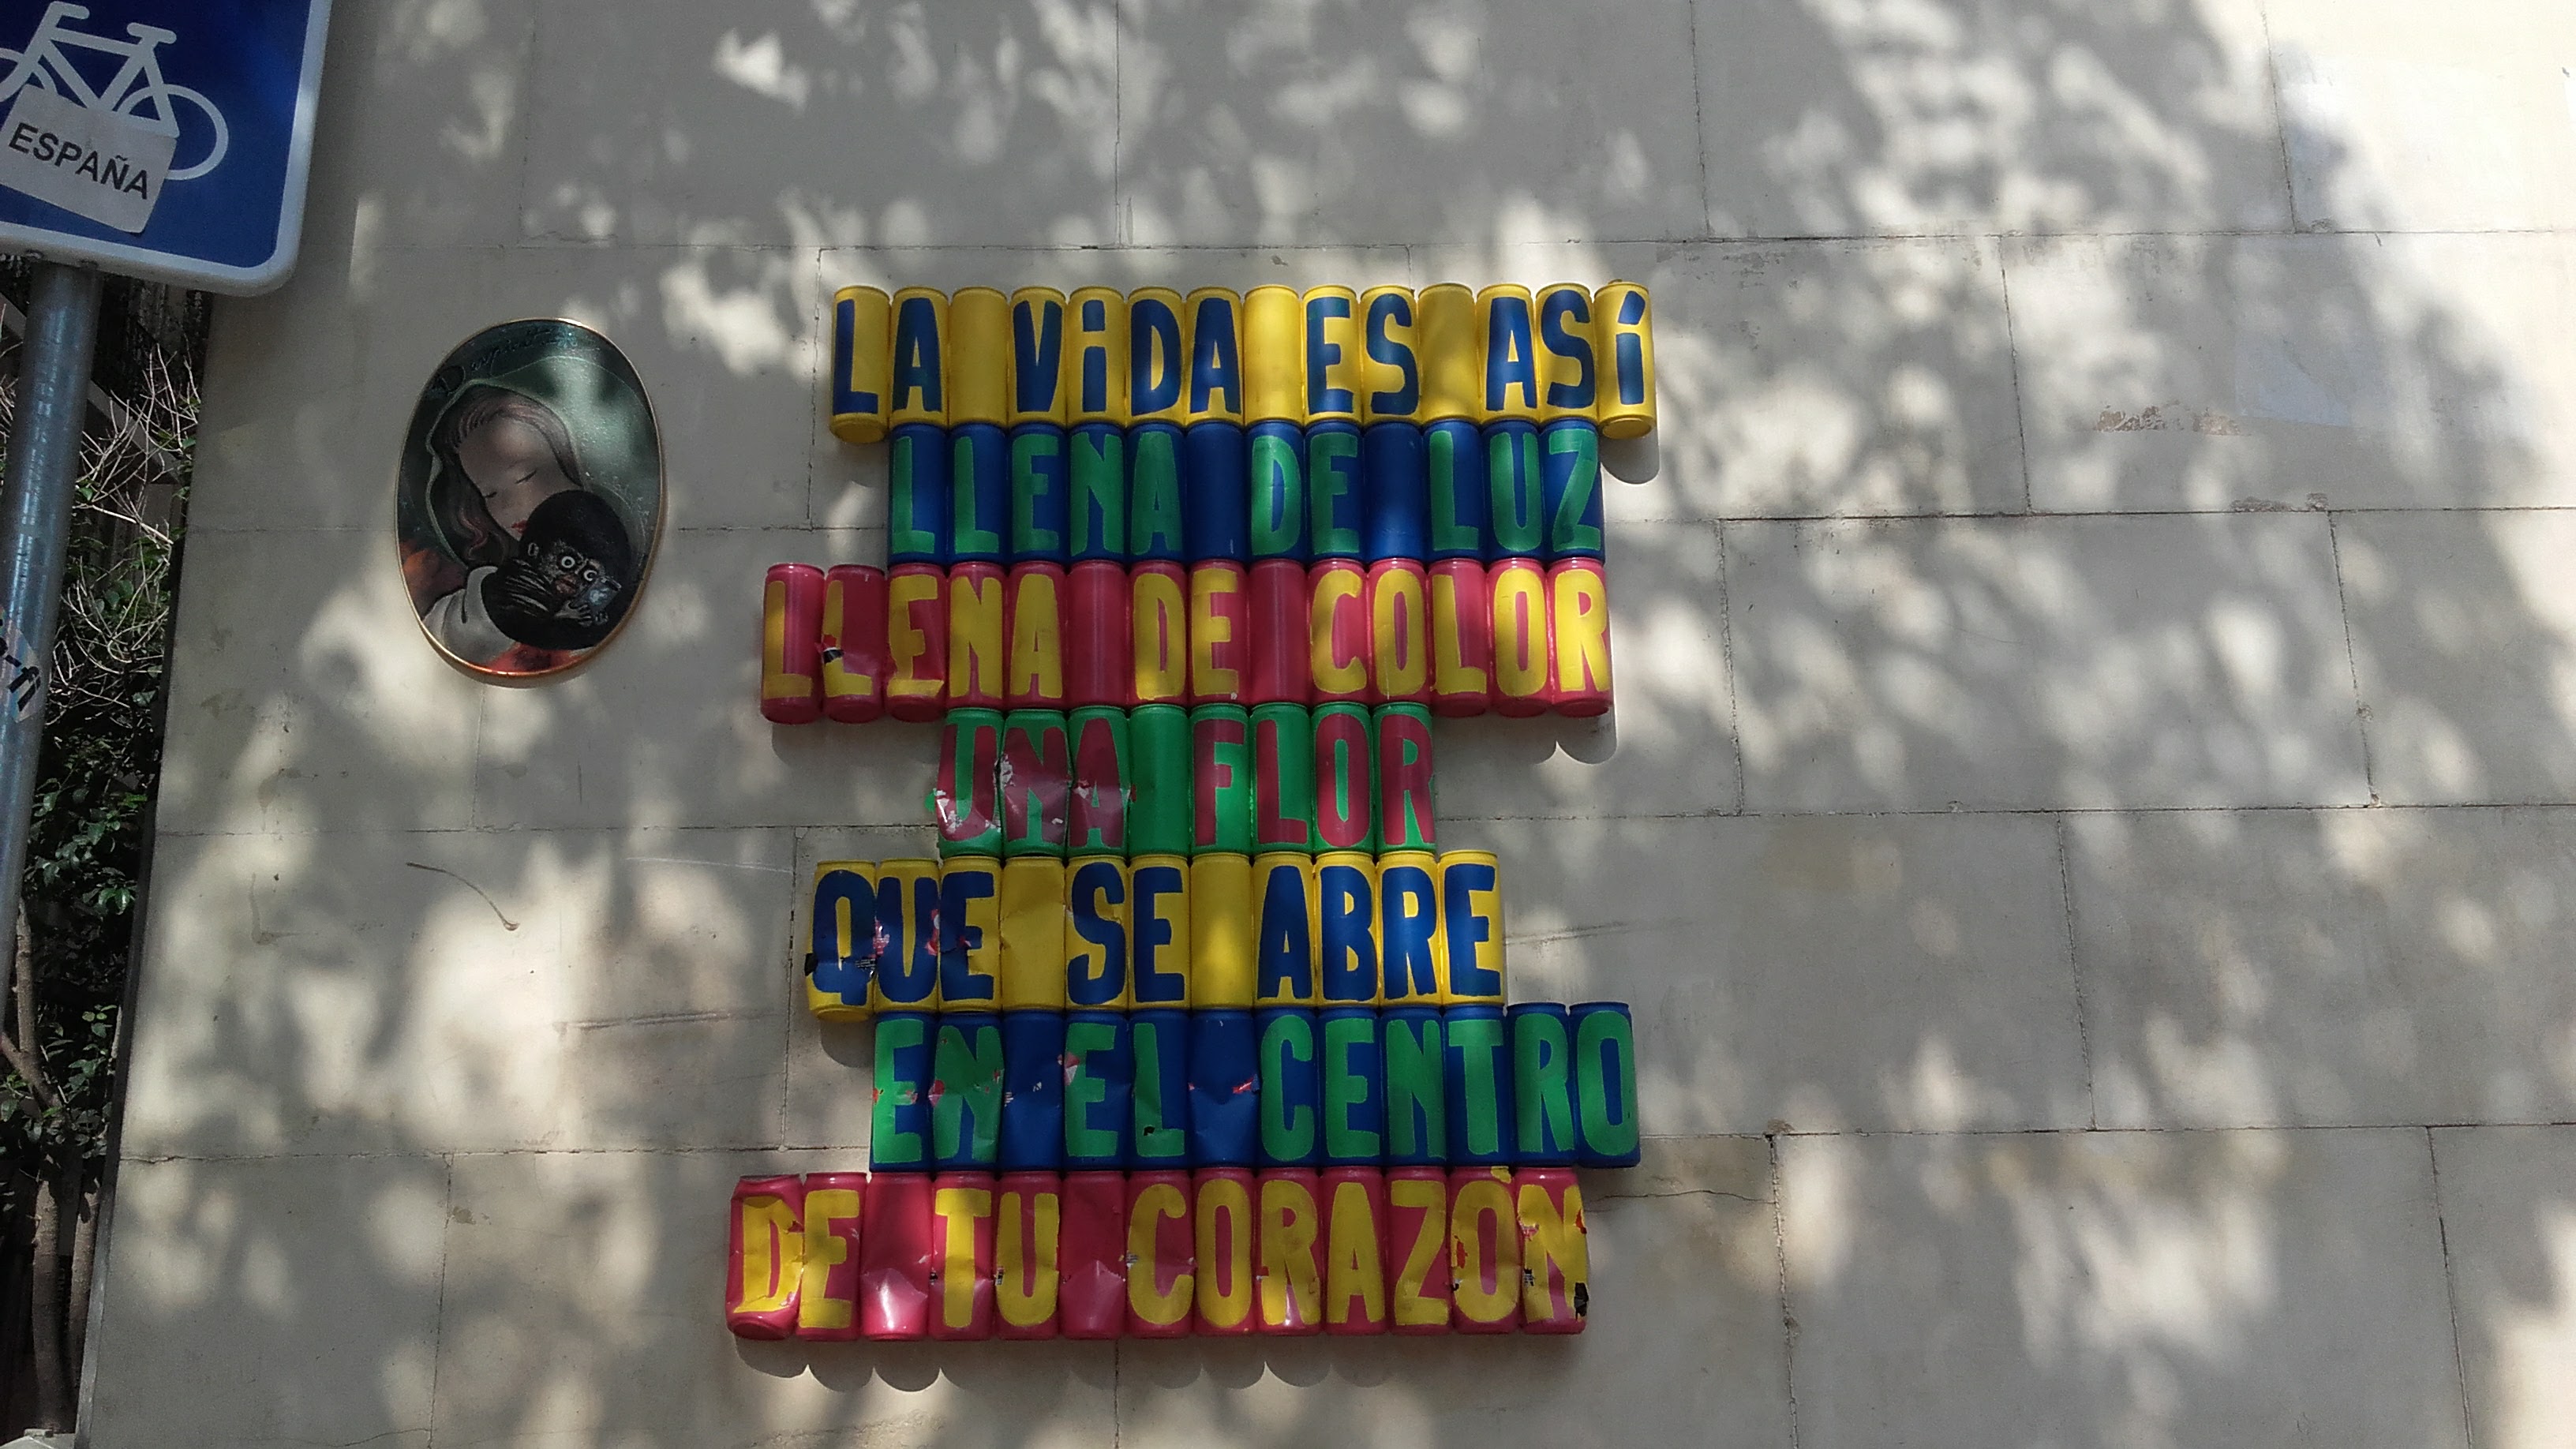 ESPAÑA
LA ViDA ES ASí
LLENA DE LUZ
LLENA DE COLOR
UNA FLOR
QUE SE ABRE
EN EL CENTRO
DE TU CORAZÓN